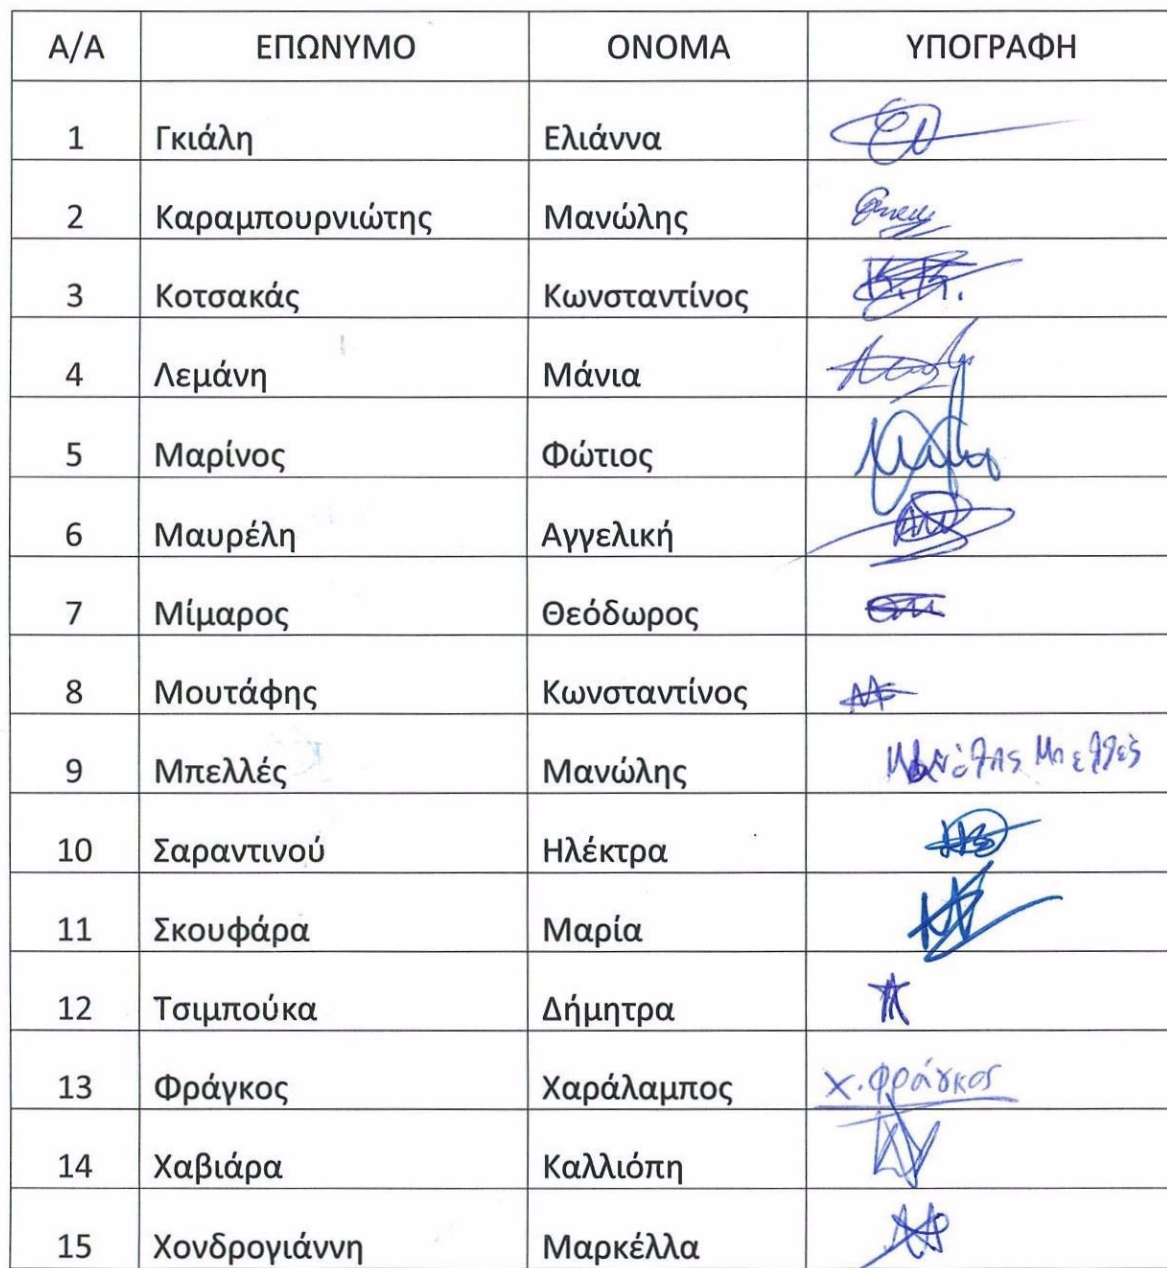 Α/Α ΕΠΩΝΥΜΟ ΟΝΟΜΑ ΥΠΟΓΡΑΦΗ
1 Γκιάλη Ελιάννα
2 Καραμπουρνιώτης Μανώλης
3 Κοτσακάς Κωνσταντίνος Κ.Κ.
4 Λεμάνη Μάνια
5 Μαρίνος Φώτιος
6 Μαυρέλη Αγγελική
7 Μίμαρος Θεόδωρος
8 Μουτάφης Κωνσταντίνος
9 Μπελλές Μανώλης Μανώλης Μπελλές
10 Σαραντινού Ηλέκτρα
11 Σκουφάρα Μαρία
12 Τσιμπούκα Δήμητρα
13 Φράγκος Χαράλαμπος Χ. Φράγκος
14 Χαβιάρα Καλλιόπη
15 Χονδρογιάννη Μαρκέλλα